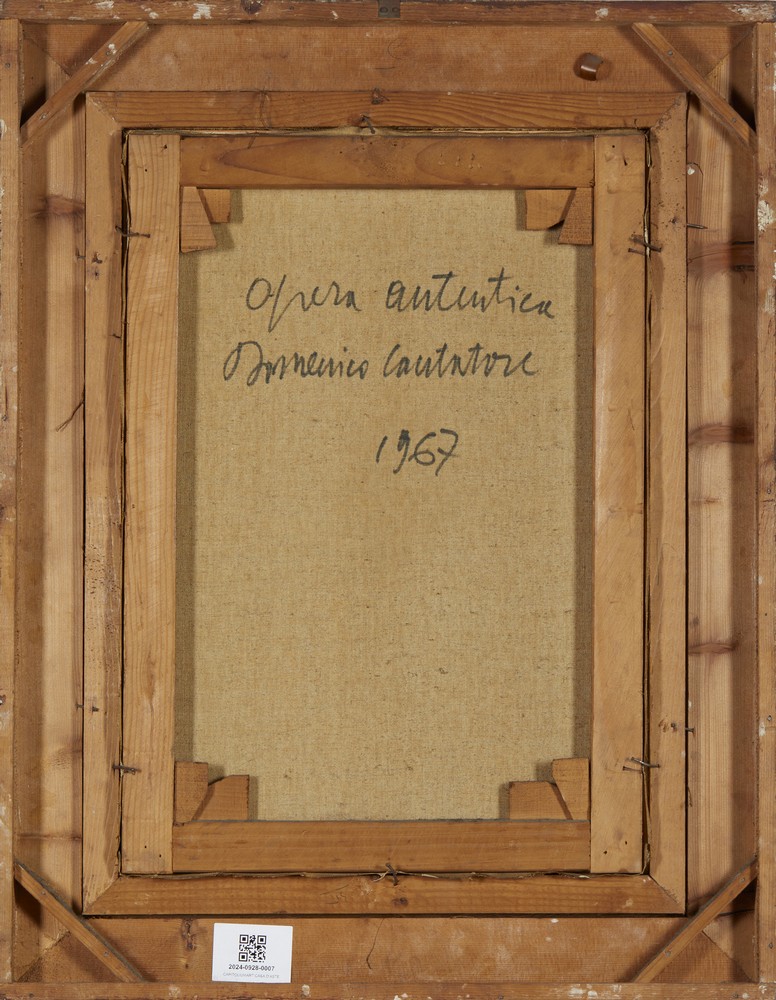 Opera autentica
Domenico Cantatore
1967
2024-0928-0007